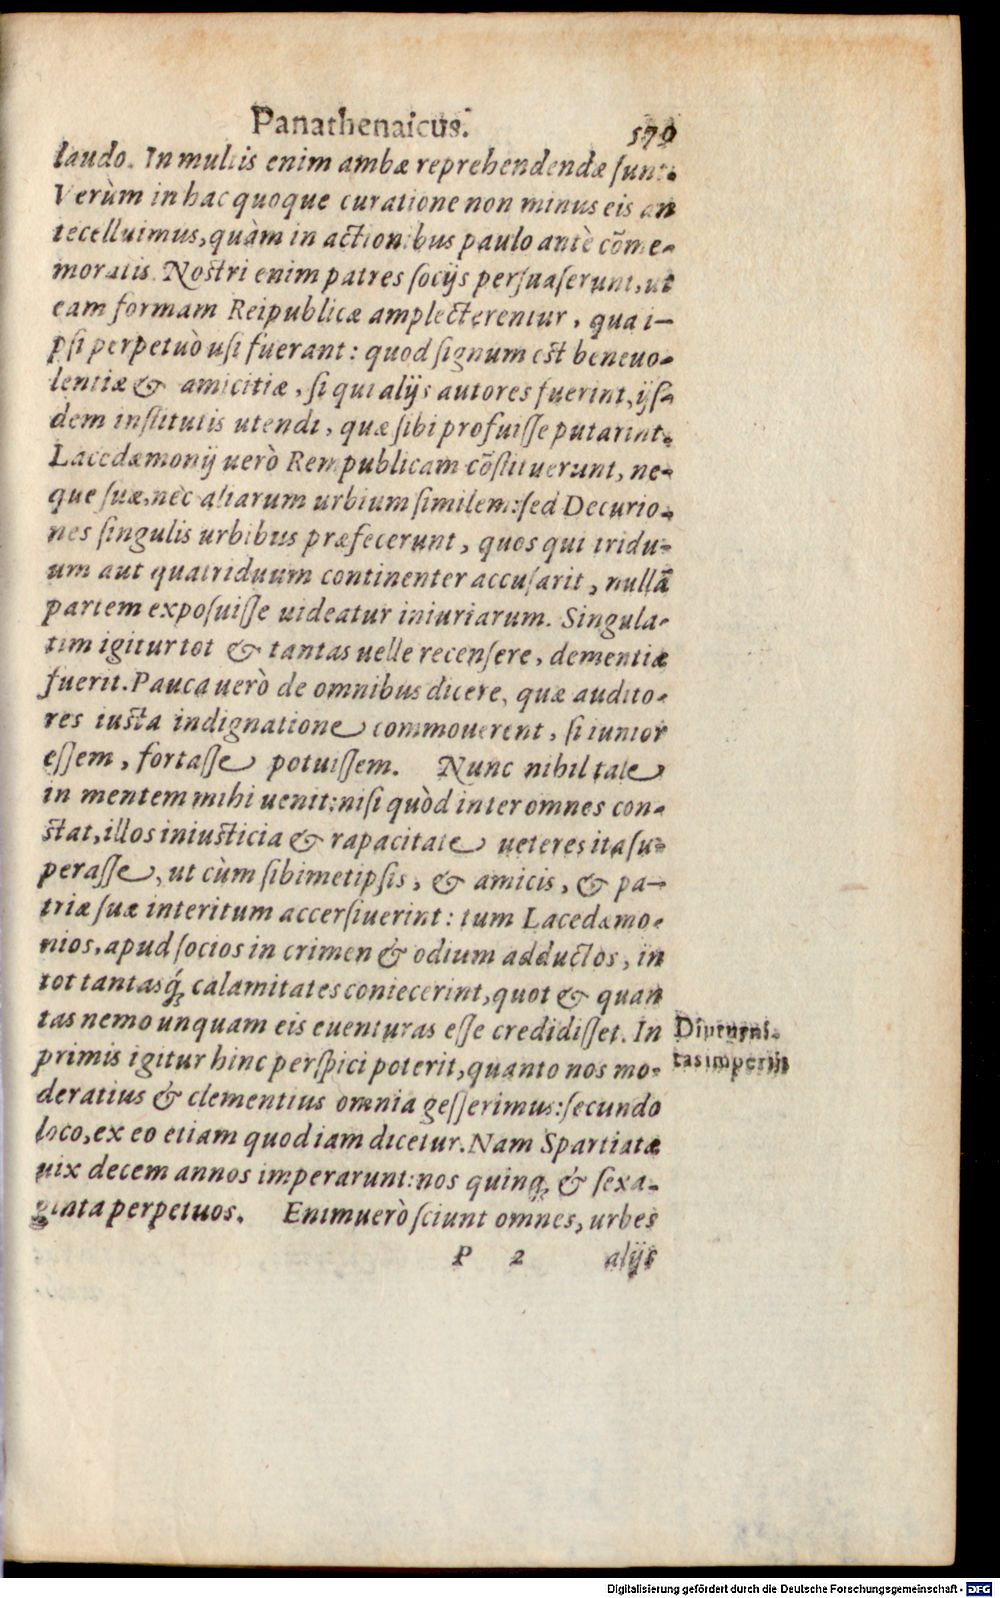 Panathenaicus. 579
laudo. In multis enim ambæ reprehendendæ ſunt.
Verùm in hac quoque curatione non minus eis an
tecelluimus, quàm in actionibus paulo antè cōme-
moratis. Nostri enim patres ſocijs perſuaſerunt, ut
eam formam Reipublicæ amplecterentur, qua i-
pſi perpetuò uſi fuerant: quod ſignum est beneuo-
lentiæ & amicitiæ, ſi qui alijs autores fuerint, ijſ-
dem inſtitutis utendi, quæ ſibi profuiſſe putarint.
Lacedæmonij uerò Rempublicam cōſtituerunt, ne-
que ſuæ, nec aliarum urbium ſimilem: ſed Decurio-
nes ſingulis urbibus præfecerunt, quos qui tridu-
um aut quatriduum continenter accuſarit, nullā
partem expoſuiſſe uideatur iniuriarum. Singula-
tim igitur tot & tantas uelle recenſere, dementiæ
fuerit. Pauca uerò de omnibus dicere, quæ audito-
res iusta indignatione commouerent, ſi iunior
eſſem, fortaſſe potuiſſem. Nunc nihil tale
in mentem mihi uenit: niſi quòd inter omnes con-
stat, illos iniusticia & rapacitate ueteres ita ſu-
peraſſe, ut cùm ſibimetipſis, & amicis, & pa-
triæ ſuæ interitum accerſiuerint: tum Lacedæmo-
nios, apud ſocios in crimen & odium adductos, in
tot tantasq́; calamitates coniecerint, quot & quan
tas nemo unquam eis euenturas eſſe credidiſſet. In
primis igitur hinc perſpici poterit, quanto nos mo-
deratius & clementius omnia geſſerimus: ſecundo
loco, ex eo etiam quod iam dicetur. Nam Spartiatæ
uix decem annos imperarunt: nos quinq; & ſexa-
ginta perpetuos. Enimuerò ſciunt omnes, urbes
Diuturni-
tas imperij
P 2 alijs
Digitalisierung gefördert durch die Deutsche Forschungsgemeinschaft - DFG